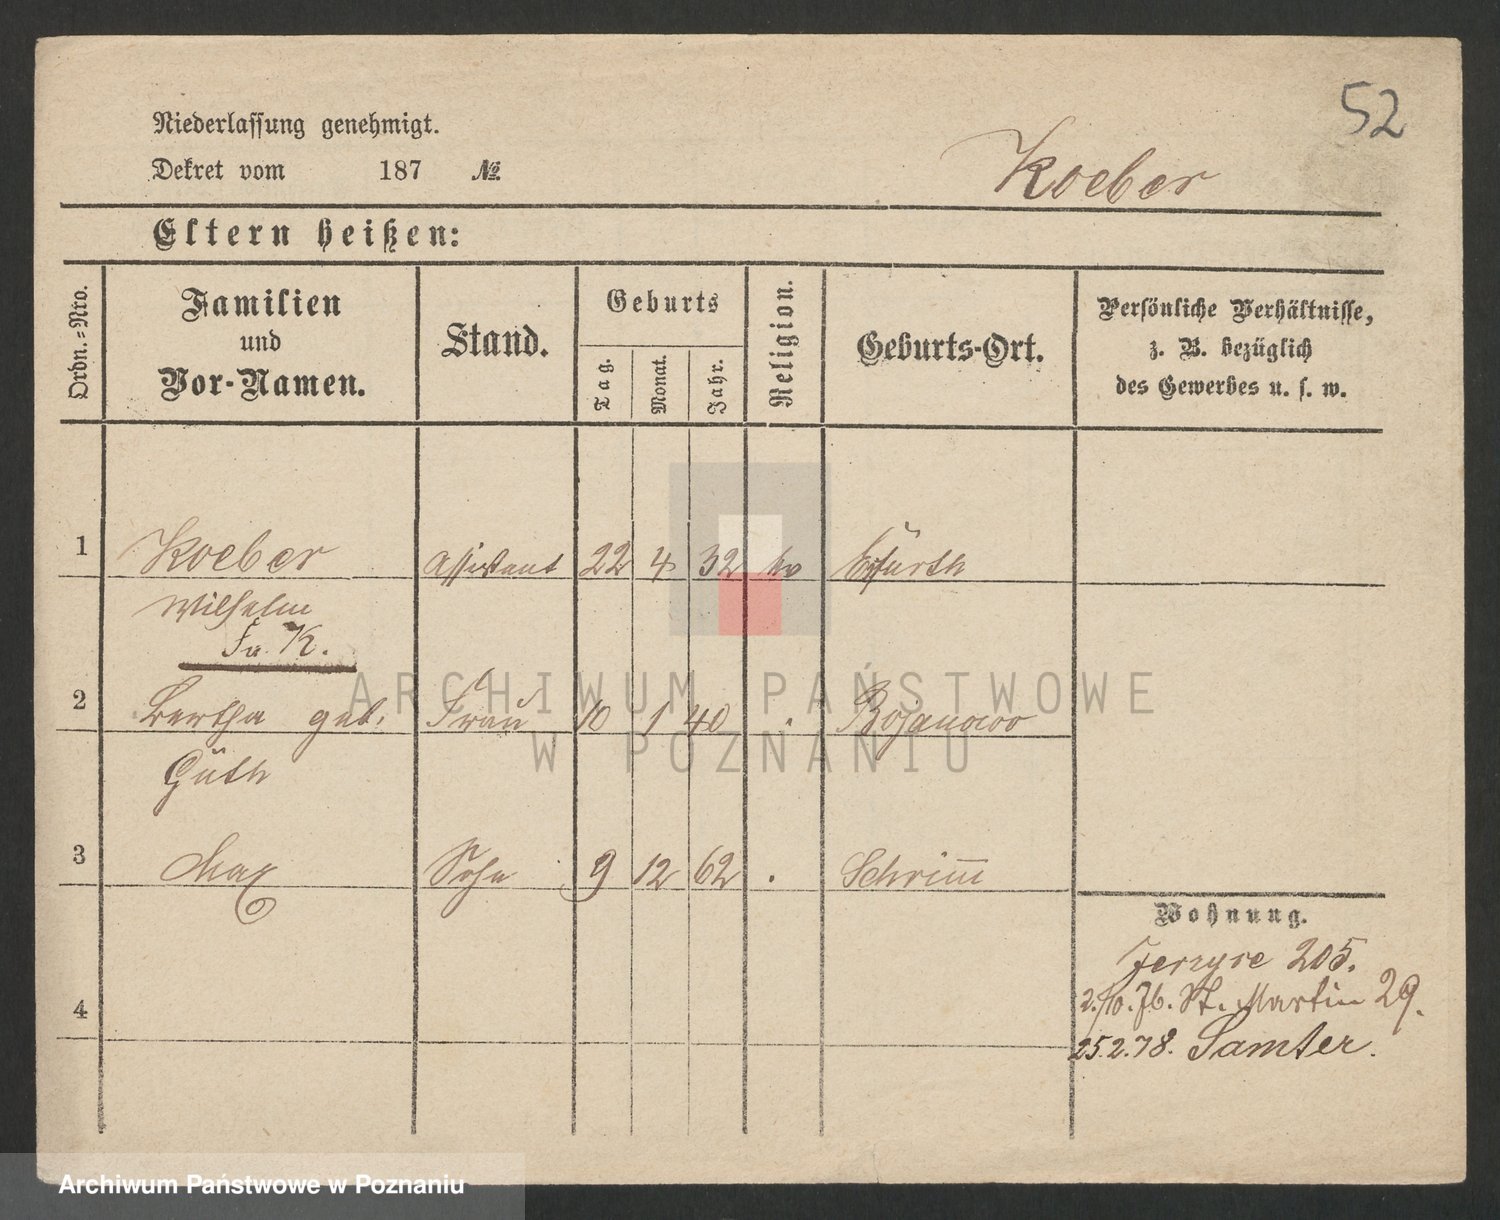 52
Niederlassung genehmigt.
Dekret vom 187 №
Koeber
Eltern heißen:
Ordn.-Nro.
Familien
und
Vor-Namen.
Stand.
Geburts
Tag.
Monat.
Jahr.
Religion.
Geburts-Ort.
Persönliche Verhältnisse,
z. B. bezüglich
des Gewerbes u. s. w.
1 Koeber Assistent 22 4 32 ev Erfurth
Wilhelm
Fa. K.
2 Bertha geb. Frau 10 1 40 . Bojanowo
Güth
3 Max Sohn 9 12 62 . Schrimm
4
Wohnung.
Jerzyce 205.
2./10. 76. St. Martin 29.
25.2.78. Samter.
ARCHIWUM PAŃSTWOWE
W POZNANIU
Archiwum Państwowe w Poznaniu